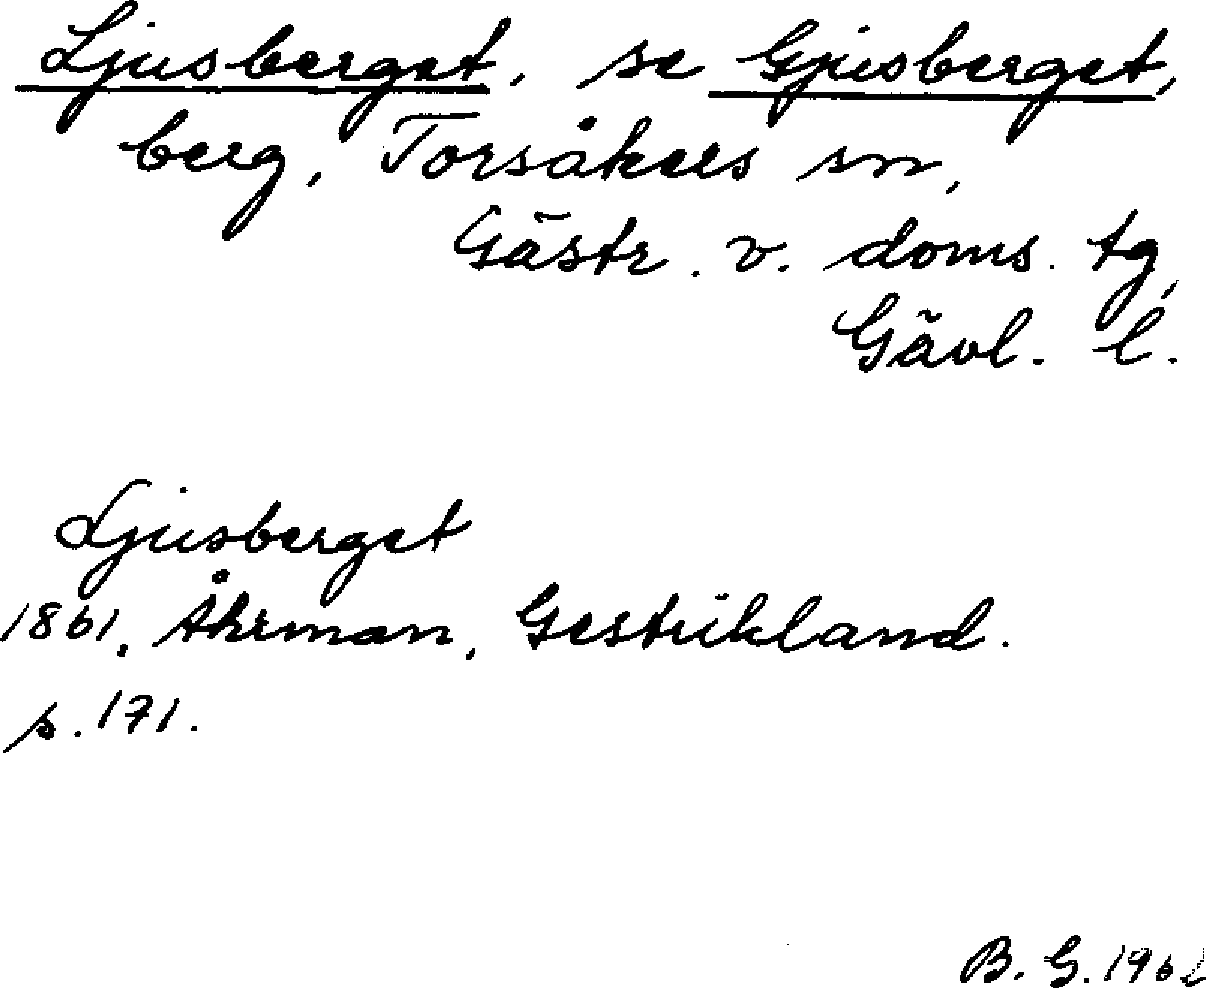 Ljusberget, se Gjusberget,
berg, Torsåkers sn,
Gästr. v. doms. tg,
Gävl. l.
Ljusberget
1861. Åhrman, Gestrikland.
s. 171.
B. G. 1962